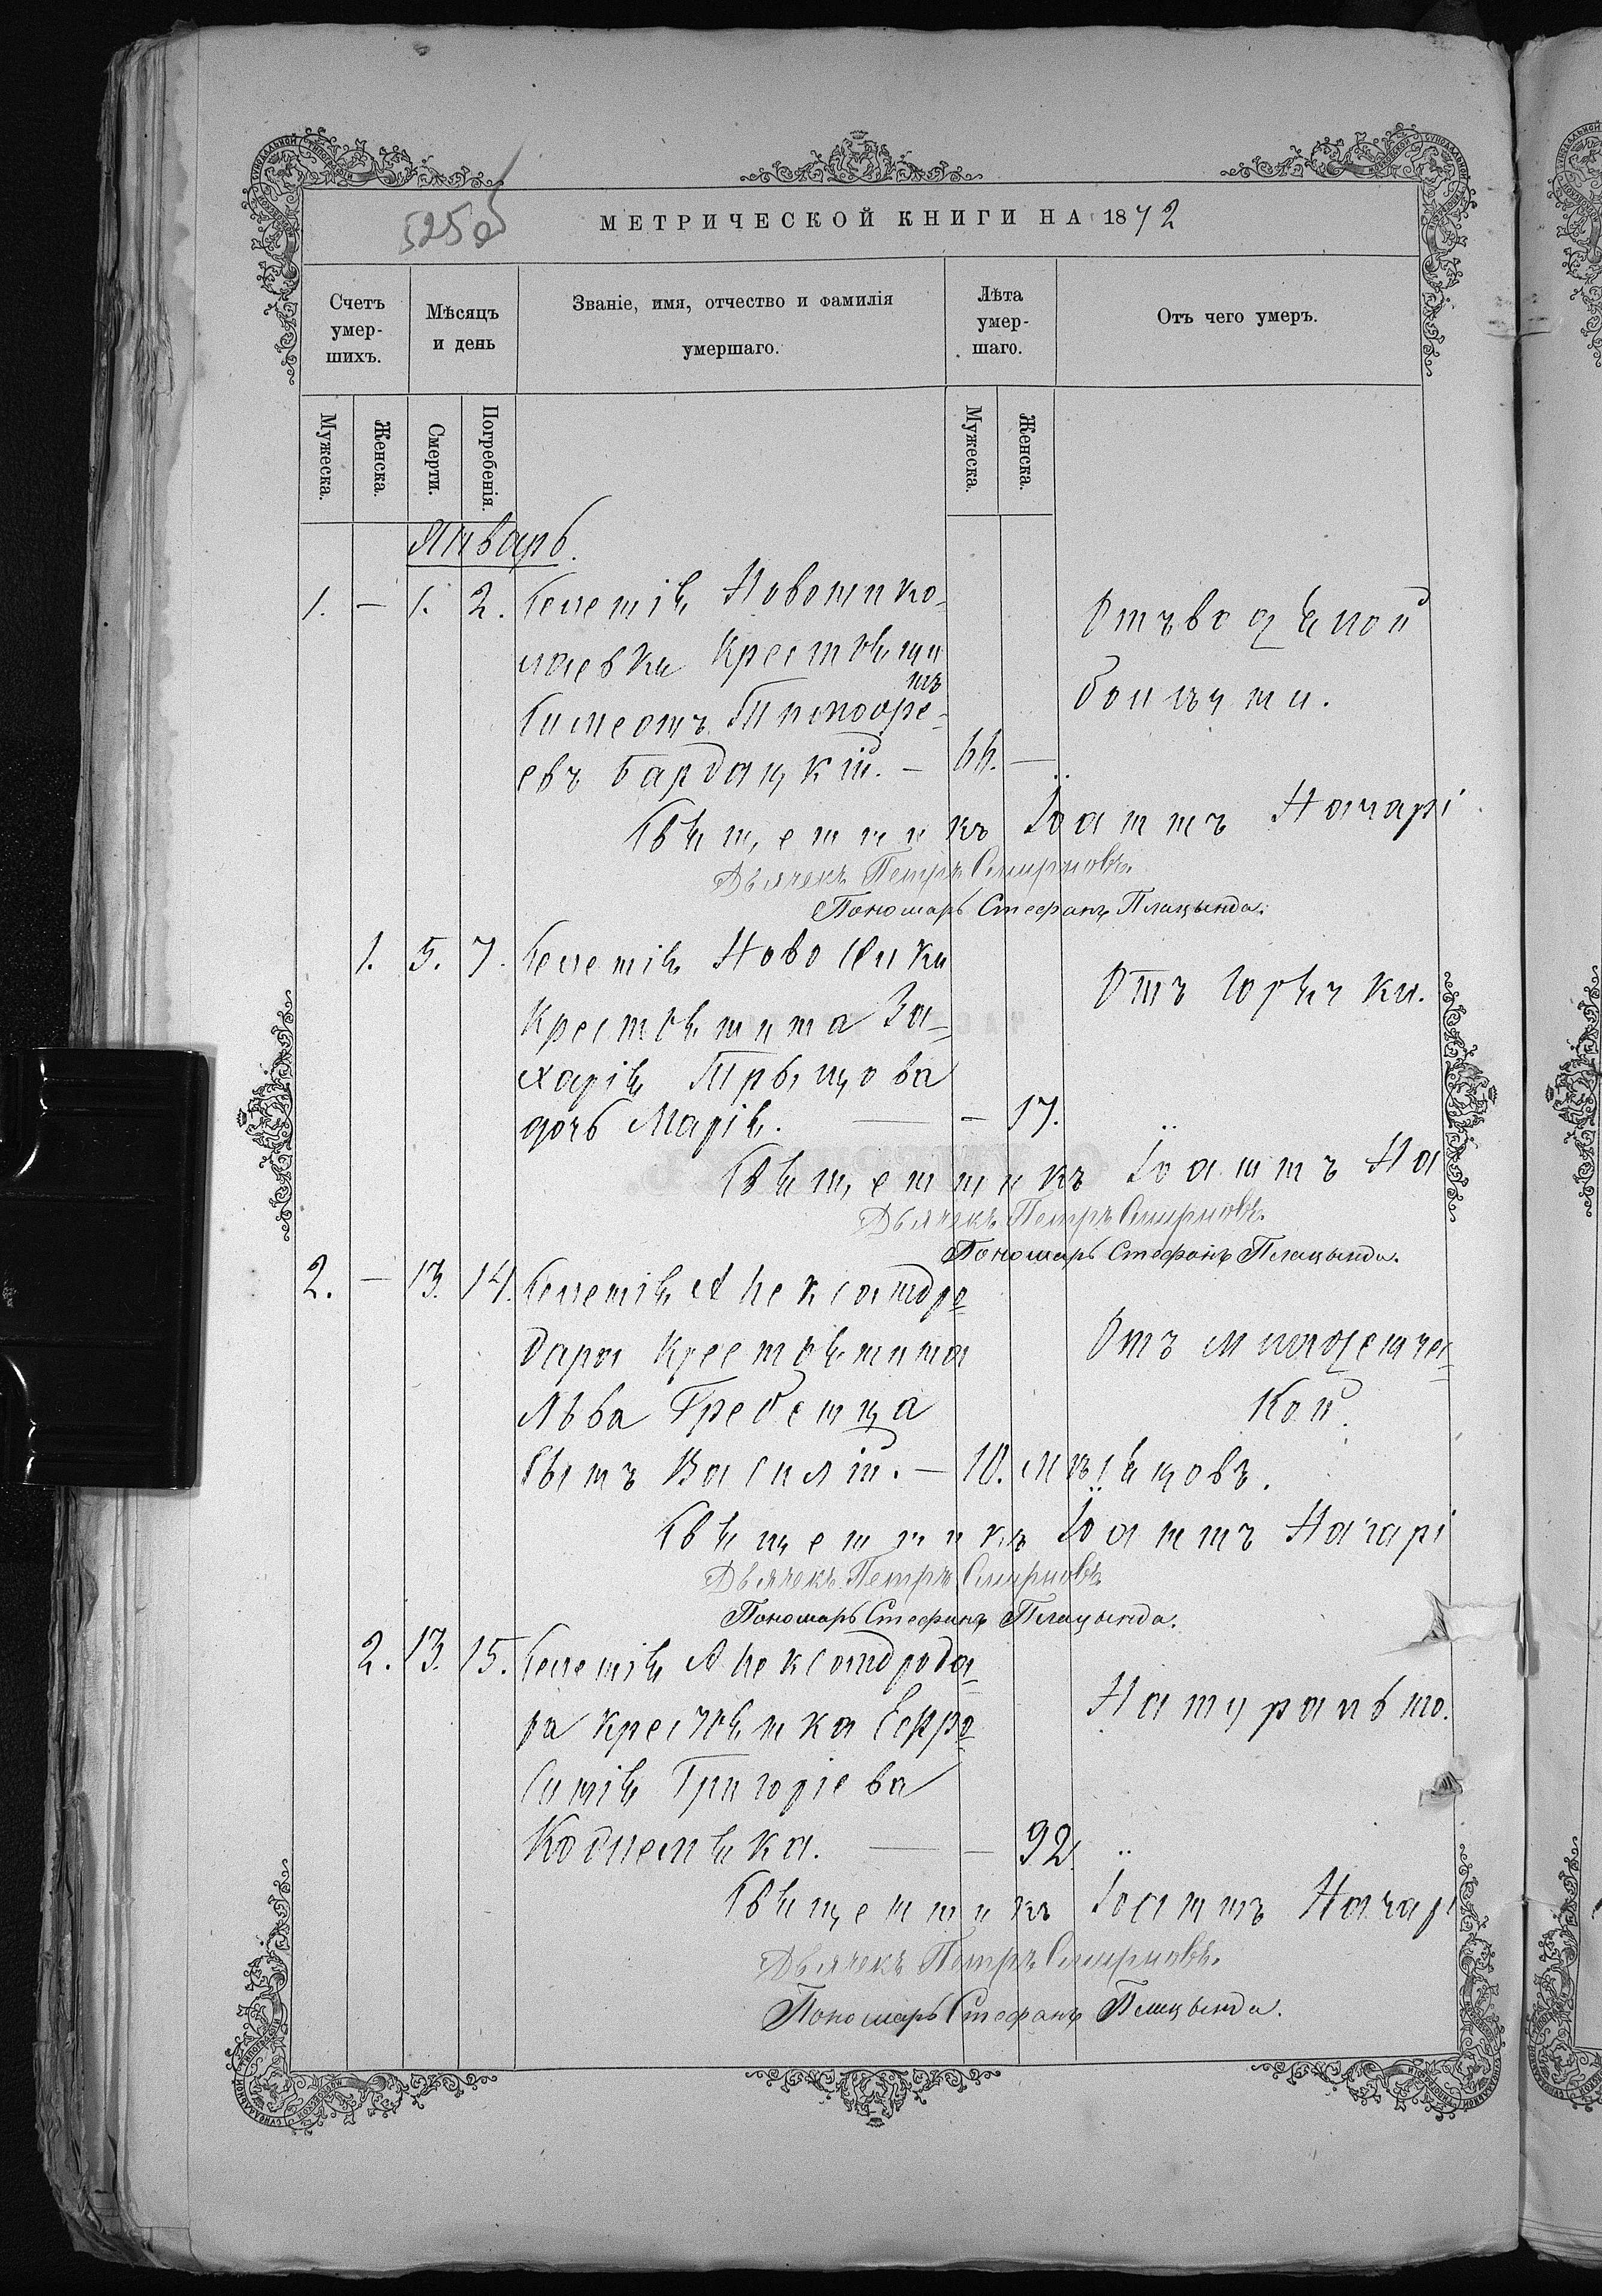 5250
МЕТРИЧЕСКОЙ КНИГИ НА 1872
Счетъ умер-шихъ.
Мѣсяцъ и день
Званіе, имя, отчество и фамилія умершаго.
Лѣта умер-шаго.
Отъ чего умеръ.
Мужеска.
Женска.
Смерти.
Погребенія.
Мужеска.
Женска.
Январь.
1. — 1. 2. Селенія Новонико- Отъ водяной
лаевки Крестьяни болѣзни.
нъ
Симеонъ Тимофе-
евъ Бардацкій. — 66. —
Священникъ Іоаннъ Начарі
Дьячекъ Петръ Смирновъ.
Пономарь Стефанъ Плацында.
1. 5. 7. Селенія Ново
Крестьянина За- Отъ горячки.
харія Прьщова
дочь Марія. — — 17.
Священникъ Іоаннъ На
Дьячекъ Петръ Смирновъ.
Пономарь Стефанъ Плацында.
2. — 13. 14. Селенія Александро-
дара крестьянина Отъ младенчес-
Льва Гребенца кой.
сынъ Василій. — 10. мѣсяцовъ.
Священникъ Іоаннъ Начарі
Дьячекъ Петръ Смирновъ
Пономарь Стефанъ Плацында.
2. 13. 15. Селенія Александрода-
ра крестьянка Евфро- Натурально.
синія Григоріева
— — 92.
Священникъ Іоаннъ Начарі
Дьячекъ Петръ Смирновъ.
Пономарь Стефанъ Плацында.